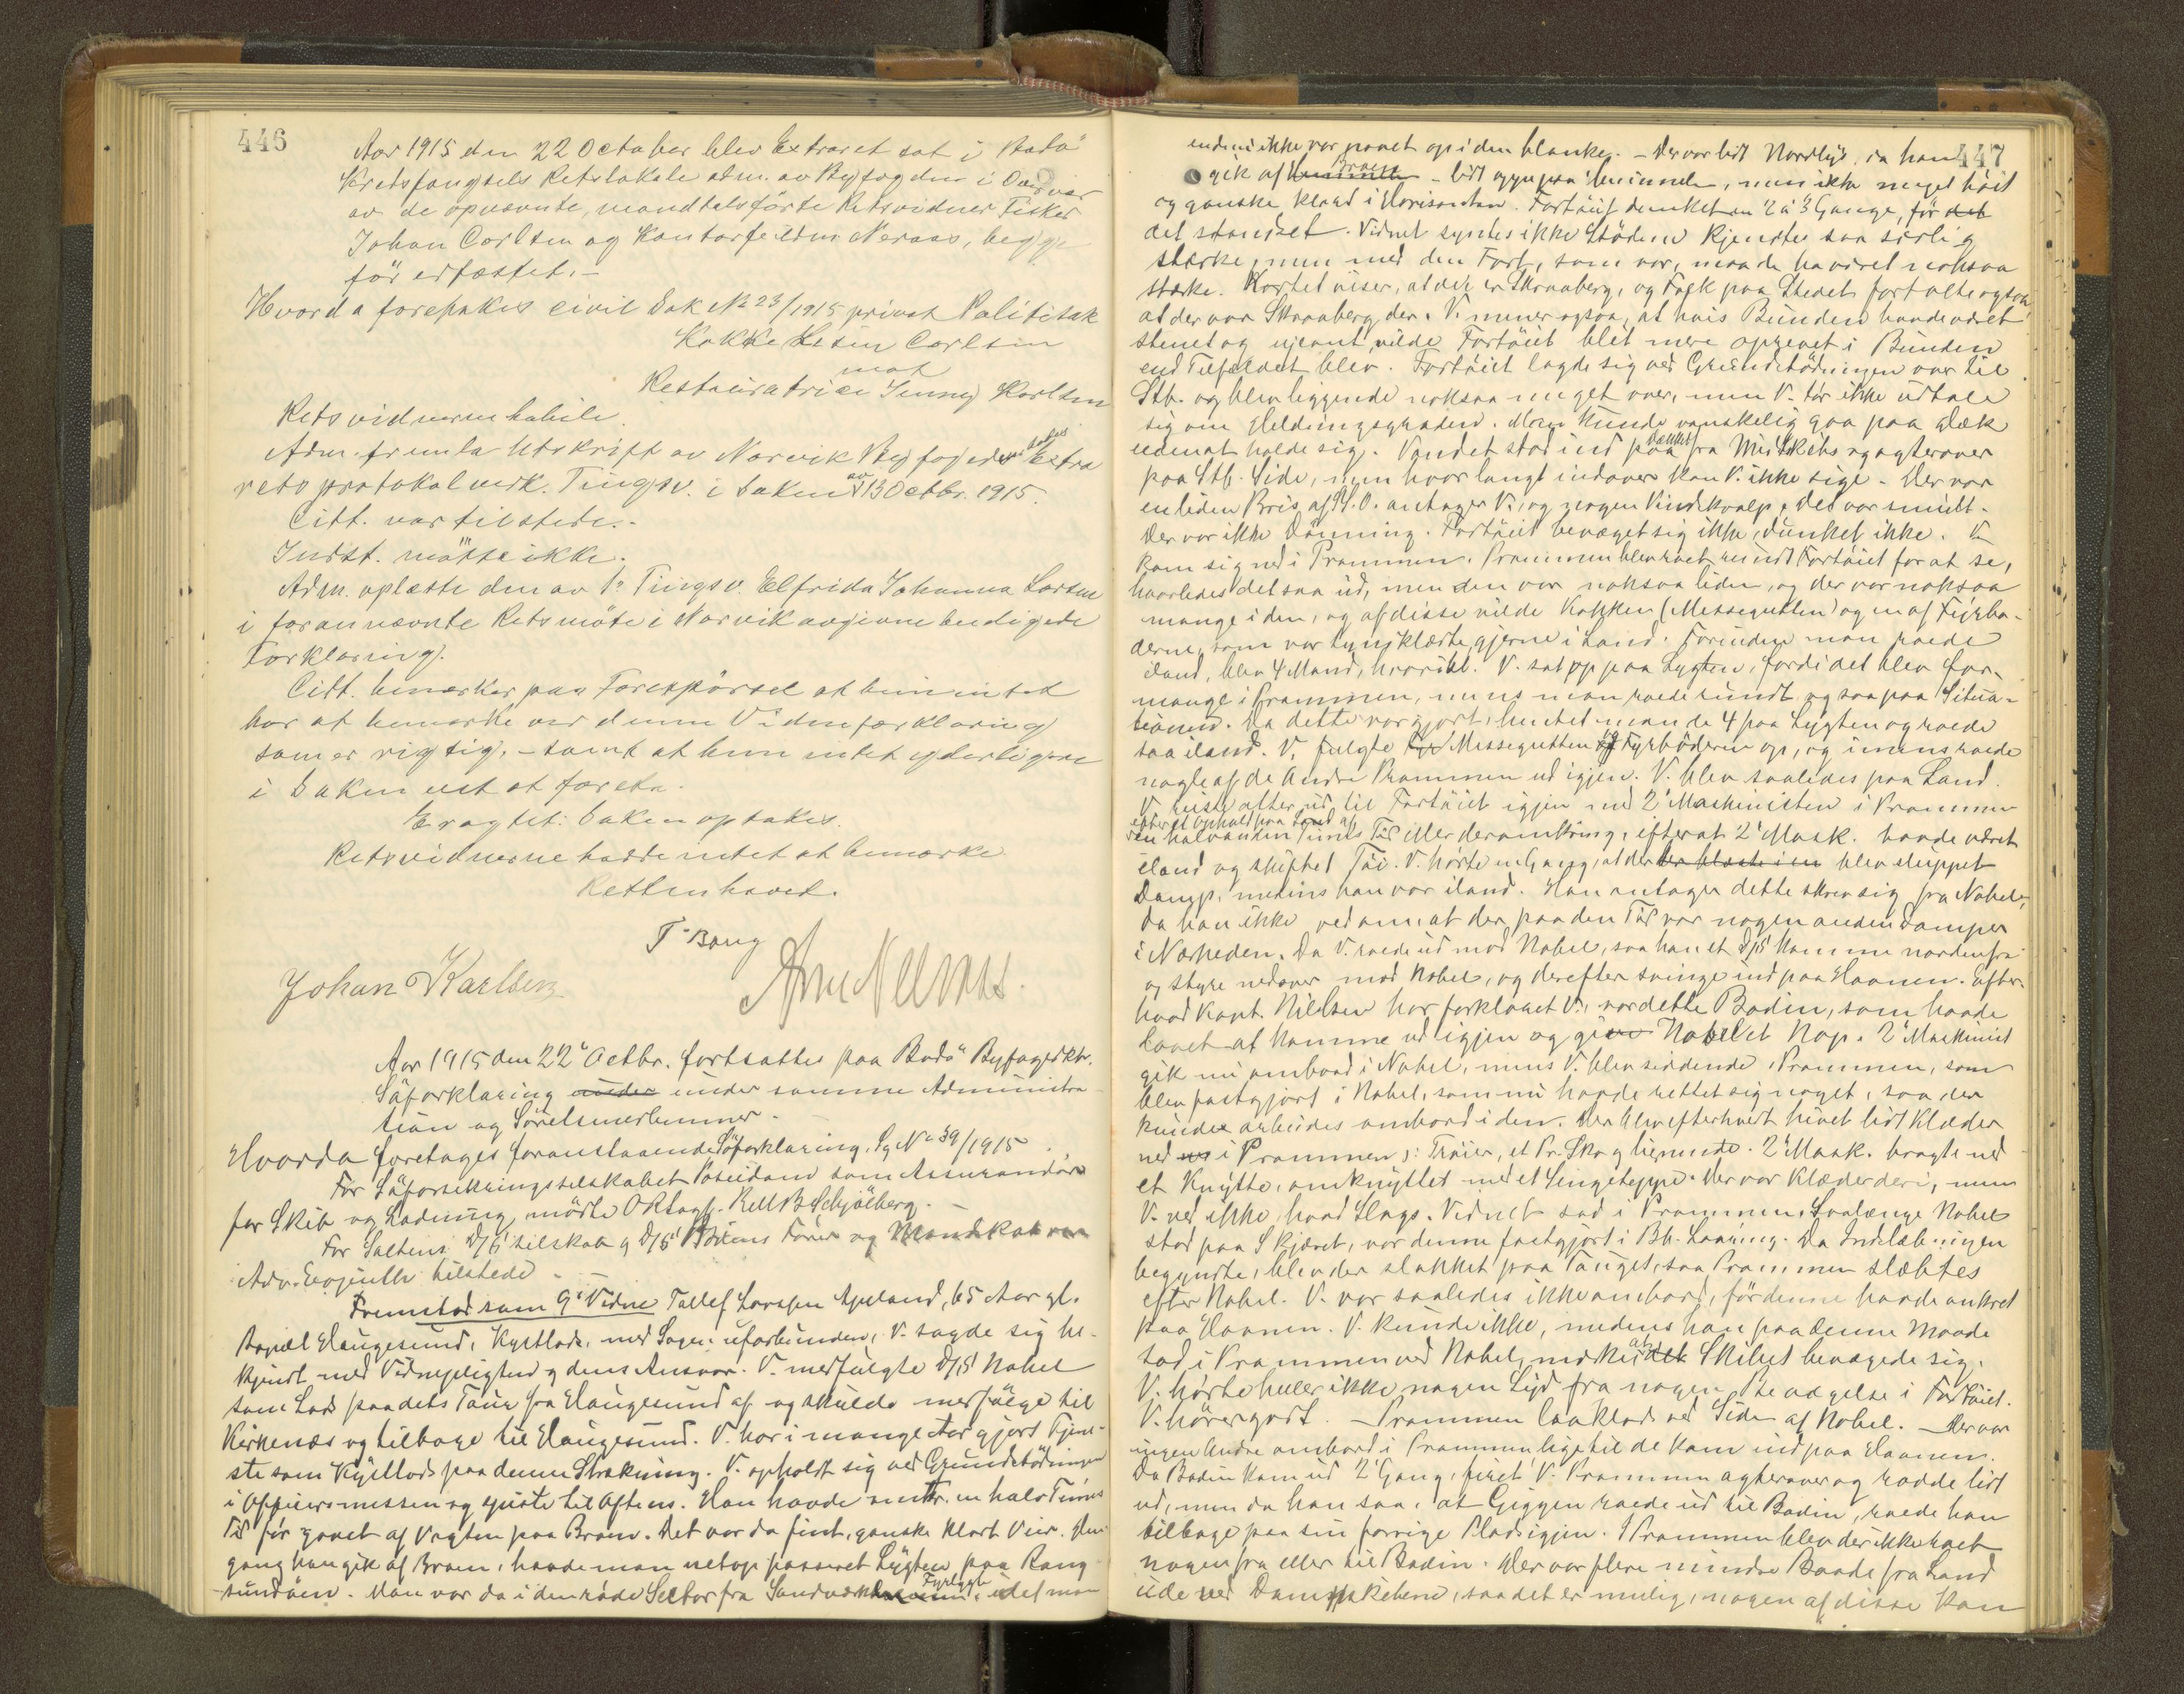 446
Aar 1915 den 22 October blev Extraret sat i Bodø
Kretsfængsels Retslokale adm. av Byfogden i Overvær
av de opnævnte, mandtalsførte Retsvidner Fisker
Johan Carlsen og Kontorfuldm. Neraas, begge
før edfæstet. -
Hvorda foretokes civil Sak No 23/1915 privat Politisak
Kokke Carlsen
mot
Restauratrice Jenny Karlsen
Retsvidnerne habile.
Adm. fremla Utskrift av Narvik Byfogeds Extra
retsprotokol verk. Tingsv. i Saken av 13 Octbr. 1915.
Citt. var tilstede. -
Indst. møtte ikke.
Adm. oplæste den av 1ste Tingsv. Elfrida Johanna Larsen
i forannævnte Retsmøte i Narvik avgivne beedigede
Forklaring.
Citt. bemærker paa Forespørsel at hun intet
har at bemærke ved denne Vidneforklaring
som er rigtig, - samt at hun intet yderligere
i Saken ved at foreta.
Eragtet: Saken optakes.
Retsvidnerne hadde intet at bemærke.
Retten hævet.
T. Bang
Johan Karlsen
Arne Neeraas.
Aar 1915 den 22de Octbr. fortsattes paa Bodø Byfogedktr.
Søforklaring under under samme Administra-
tion og Søretsmedlemmer. -
Hvorda foretages foranstaaende Søforklaring, Sg No 39/1915
For Søforsikringsselskabet Poseidons som Assurandør
for Skib og Ladning mødte O.R.Sagf. Kell B. Schjølberg. -
For Saltens D/S selskab og D/S Bodins Fører og Mandskab var
Adv. Evjenth tilstede. -
Fremstod som 9de Vidne Tallef Larssen Apeland, 65 Aar gl.
Bopæl Haugesund, Kystlods, med Sagen uforbunden, V. sagde sig be-
kjendt med Vidnepligten og dens Ansvar. V. medfulgte D/S Nobel
som Lods paa dets Tour fra Haugesund af og skulde medfølge til
Kirkenæs og tilbage til Haugesund. V. har i mange Aar gjort Tjene-
ste som Kystlods paa denne Strækning. V. opholdt sig ved Grundstødningen
i Officersmessen og spiste til Aftens. Han havde omtr. en halv Times
Tid før gaaet af Vagten paa Broen. Det var da fint, ganske klart Veir. Den
gang han gik af Broen, havde man netop passeret Lygten paa Rang-
sundøen. Man var da i den røde Sector fra Fyrlygt, idet man
447
endnu ikke var naaet op i den blanke. - Der var lidt Nordlys, da han
gik af Broen - lidt oppe paa Himmelen, men ikke meget høit
og ganske klart i Horisonten. Fartøiet dunket en 2 à 3 Gange, før det
det standset. Vidnet syntes ikke Stødene kjendtes saa særlig
stærke, men med den Fart, som var, maa de ha været noksaa
stærke. Kartet viser, at der er Skraaberg, og Folk paa Stedet fortalte ogsaa,
at der var Skraaberg der. V. mener ogsaa, at hvis Bunden havde været
stenet og ujevnt, vilde Fartøiet blet mere oprevet i Bunden
end Tilfældet blev. Fartøiet lagde sig ved Grundstødningen over til
Stb. og blev liggende noksaa meget over, men V. tør ikke udtale
sig om Heldningsgraden. Man kunde vanskelig gaa paa Dæk
uden at holde sig. Vandet stod ind paa Dækket fra Midtskibs og agterover
paa Stb. Side, men hvor langt indover kan V. ikke sige. - Der var
en liden Bris af S.O. antager V., og nogen Vindkvalp, det var smult.
Der var ikke Dønning. Fartøiet bevæget sig ikke, dunket ikke. V.
kom sig ned i Prammen. Prammen blev roet rundt Fartøiet for at se,
hvorledes det saa ud, men den var noksaa liden, og der var noksaa
mange i den, og af disse vilde Kokken (Messegutten) og en af Fyrbø-
derne, som var tyndklædte, gjerne i Land. Forinden man roede
iland, blev 4 Mand, hvoribl. V. sat op paa Lygten, fordi det blev for
mange i Prammen, mens man roede rundt og saa paa Situa-
tionen. Da dette var gjort, hentet man de 4 paa Lygten og roede
saa iland. V. fulgte Messegutten og Fyrbøderen op, og imens roede
nogle af de Andre Prammen ud igjen. V. blev saaledes paa Land.
V. reiste atter ud til Fartøiet igjen med 2den Maskinisten i Prammen
efter et Ophold paa Land af
en halvanden Times Tid eller deromkring, efterat 2den Mask. havde været
iland og skiftet Tøi. V. hørte en Gang, at der blev sluppet
Damp, medens han var iland. Han antager dette skrev sig fra Nobel,
da han ikke ved om at der paa den Tid var nogen anden Damper
i Nærheden. Da V. roede ud mod Nobel, saa han et D/S komme nordenfra
og styre nedover mod Nobel, og derefter svinge ind paa Havnen. Efter
hvad Kapt. Nielsen har forklaret V., var dette Bodin, som havde
lovet at komme ud igjen og give Nobel et Nap. 2den Maskinist
gik nu ombord i Nobel, mens V. blev siddende i Prammen, som
blev fastgjort i Nobel, som nu havde rettet sig noget, saa der
kunde arbeides ombord i den. Der blev efterhvert hivet lidt Klæder
ned i Prammen s: Trøier, et Pr. Sko og lignende. 2den Mask. bragte ned
et Knytte, omknyttet med et Sengeteppe. Der var Klæder deri, men
V. ved ikke, hvad Slags. Vidnet sad i Prammen. Saalænge Nobel
stod paa Skjæret, var denne fastgjort i Bb. Laaring. Da Indslæbningen
begyndte, blev der slakket paa Touget, saa Prammen slæbtes
efter Nobel. V. var saaledes ikke ombord, før denne havde ankret
paa Havnen. V. kunde ikke, medens han paa denne Maade
sad i Prammen ved Nobel, merke, at Skibet bevægede sig.
V. hørte heller ikke nogen Lyd fra nogen Bevægelse i Fartøiet.
V. hører godt. - Prammen laa klods ved Siden af Nobel. - Der var
ingen Andre ombord i Prammen lige til de kom ind paa Havnen.
Da Bodin kom ud 2den Gang, firet V. Prammen agterover og rodde lidt
ud, men da han saa, at Giggen roede ud til Bodin, roede han
tilbage paa sin forrige Plads igjen. I Prammen blev der ikke roet
nogen fra eller til Bodin. Der var flere mindre Baade fra Land
ude ved Dampskibene, saa det er mulig, nogen af disse kan